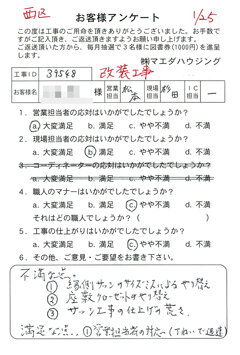 西区
お客様アンケート
1/25
この度は工事のご用命を頂きありがとうございました。お手数で
すがご記入頂き、ご返送頂きますようお願い申し上げます。
ご返送頂いた方から、毎月抽選で3名様に図書券(1000円)を進呈
します。
㈱マエダハウジング
工事ID 39568 改装工事
お客様名 様 営業担当 松本 現場担当 杉田 IC担当 一
1. 営業担当者の応対はいかがでしたでしょうか?
a. 大変満足 b. 満足 c. やや不満 d. 不満
2. 現場担当者の応対はいかがでしたでしょうか?
a. 大変満足 b. 満足 c. やや不満 d. 不満
3. コーディネーターの応対はいかがでしたでしょうか?
a. 大変満足 b. 満足 c. やや不満 d. 不満
4. 職人のマナーはいかがでしたでしょうか?
a. 大変満足 b. 満足 c. やや不満 d. 不満
それはどの職人でしょうか? ( )
5. 工事の仕上がりはいかがでしたでしょうか?
a. 大変満足 b. 満足 c. やや不満 d. 不満
6. その他、ご意見・ご要望をお書き下さい。
不満な点。
① 縁側サッシのサイズミスによるやり替え
② 座敷クローゼットのやり替え
③ サッシ工事の仕上げの荒さ
満足な点。①営業担当者の対応